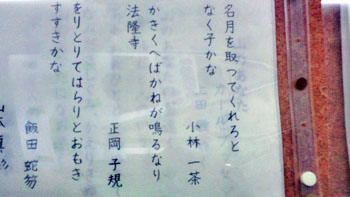 名月を取つてくれろと
なく子かな
小林 一茶
かきくへばかねが鳴るなり
法隆寺
正岡 子規
をりとりてはらりとおもき
すすきかな
飯田 蛇笏